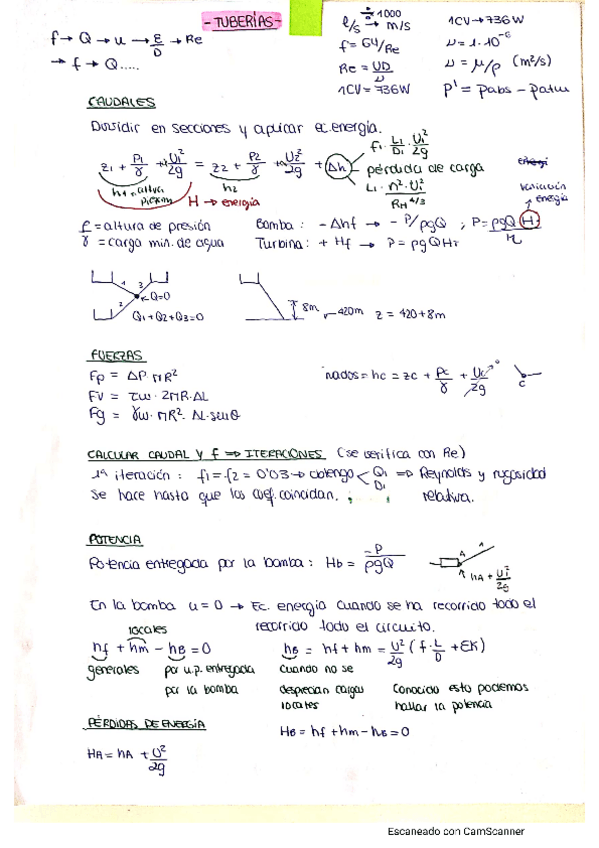 - TUBERÍAS -
f → Q → u → E/D → Re
→ f → Q .....
l/s → m/s ÷ 1000
f = 64/Re
Re = UD/ν
1CV = 736W
1CV → 736W
ν = 1·10⁻⁶
ν = μ/ρ (m²/s)
P' = Pabs - Patm
CAUDALES
Dividir en secciones y aplicar ec. energía.
z1 + P1/γ + U1²/2g = z2 + P2/γ + U2²/2g + Δh
f1 · L1/D1 · U1²/2g
pérdida de carga
L1 · n² · U1²/RH^4/3
h1 = altura
h2
H → energía
variación energía
P/γ = altura de presión
= carga min. de agua
Bomba: - Δhf → - P/ρgQ ; P = ρgQH/η
Turbina: + Hf → P = ρgQHT
1 3
2
Q=0
Q1+Q2+Q3=0
8m
420m
z = 420+8m
FUERZAS
Fp = ΔP·πR²
Fv = τw · 2πR·ΔL
Fg = γw · πR² · ΔL·senθ
nudos = hc = zc + Pc/γ + Uc²/2g 0
c
CALCULAR CAUDAL Y f ⇒ ITERACIONES (se verifica con Re)
1ª iteración: f1 = f2 = 0'03 → obtengo Q1 D1 ⇒ Reynolds y rugosidad
Se hace hasta que los coef. coincidan. relativa.
POTENCIA
Potencia entregada por la bomba: Hb = -P/ρgQ
A 1
hA + U1²/2g
En la bomba u = 0 → Ec. energía cuando se ha recorrido todo el
recorrido todo el circuito.
locales
hf + hm - hB = 0
hB = hf + hm = U²/2g (f · L/D + ΣK)
generales por u.p. entregada por la bomba
cuando no se desprecian cargas locales
Conocido esto podemos hallar la potencia
PÉRDIDAS DE ENERGÍA
HB = hf + hm - hB = 0
HA = hA + U²/2g
Escaneado con CamScanner